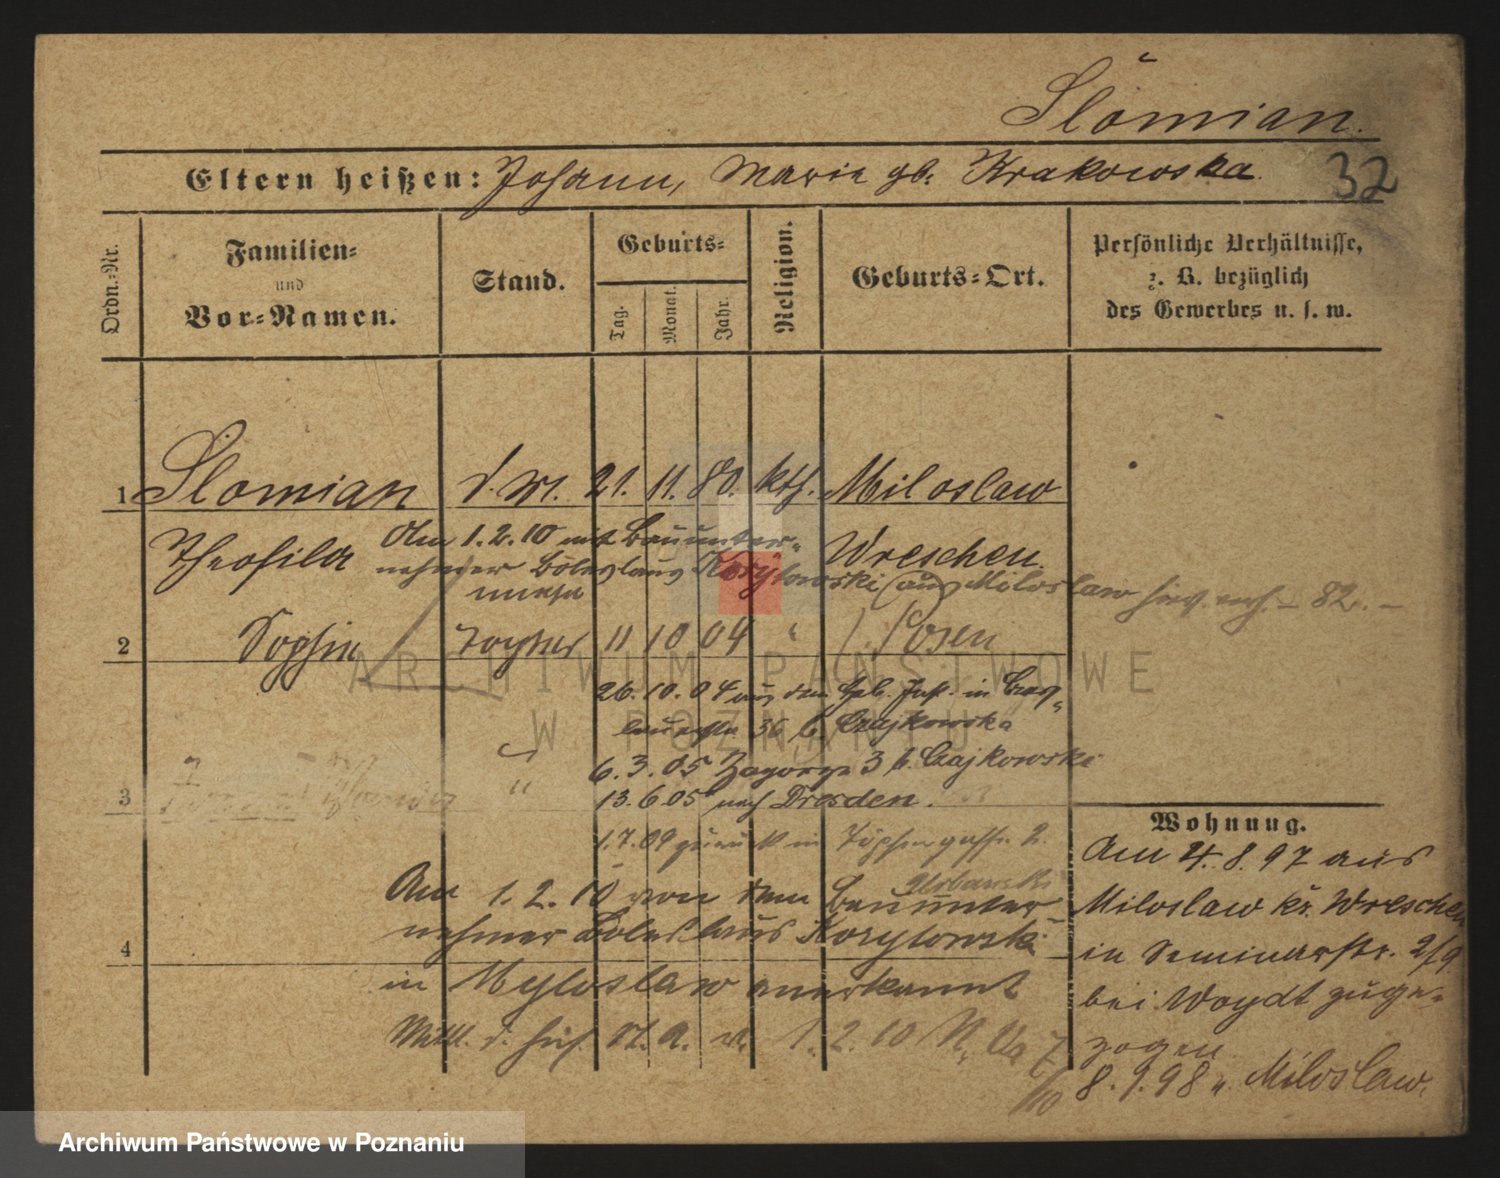 Slomian.
Eltern heißen: Johann, Marie gb. Krakowska.
32
Ordn.-Nr.
Familien-
und
Vor-Namen.
Stand.
Geburts-
Tag.
Monat.
Jahr.
Religion.
Geburts-Ort.
Persönliche Verhältnisse,
z. B. bezüglich
des Gewerbes u. s. w.
1 Slomian d. M. 21. 11. 80. kth. Miloslaw
Theofila Wreschen.
Am 1.2.10 mit Bauunter-
nehmer Boleslaus Korytowski (aus Miloslaw
82.
2 Sophie Tochter 11 10 04 " Posen
26. 10. 04 aus
36 b. Czajkowska
6. 3. 05 Zagorze 3 b. Czajkowski
3 "
13. 6 05 nach Dresden.
1.7.09 zurück in Töpfergasse 2.
Urbanski
Am 1. 2. 10 von dem Bauunter-
nehmer Boleslaus Korytowski
4
in Myloslaw anerkannt
Mittl. d. St. A. v. 1. 2. 10
Wohnung.
Am 4. 8. 97 aus
Miloslaw kr. Wreschen
in Seminarstr. 2/9
bei Woydt zuge-
zogen
8. 9. 98 n. Miloslaw.
ARCHIWUM PAŃSTWOWE
W POZNANIU
Archiwum Państwowe w Poznaniu